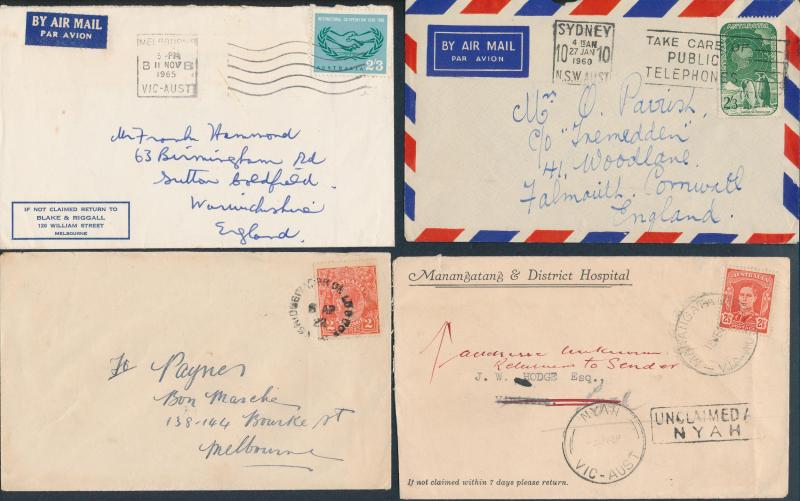 BY AIR MAIL
PAR AVION
MELBOURNE
3 - PM
1965
VIC-AUST
INTERNATIONAL CO-OPERATION YEAR 1965
AUSTRALIA 2/3
Mr Frank Hammond
63 Birmingham Rd
Sutton Coldfield
Warwickshire
England.
IF NOT CLAIMED RETURN TO
BLAKE & RIGGALL
120 WILLIAM STREET
MELBOURNE
BY AIR MAIL
PAR AVION
SYDNEY
27 JAN
1960
N.S.W. AUST
10
10
TAKE CARE OF
PUBLIC
TELEPHONES
2/3
Mr O. Parrish
C/o "Tremedden"
41 Woodlane
Falmouth, Cornwall
England.
AUSTRALIA
2
2
To Paynes
Bon Marche
138-144 Bourke st
Melbourne
Manangatang & District Hospital
AUSTRALIA
2½
address unknown
Return to Sender
J. W. HODGE Esq.,
NYAH
VIC-AUST
UNCLAIMED A
NYAH
If not claimed within 7 days please return.